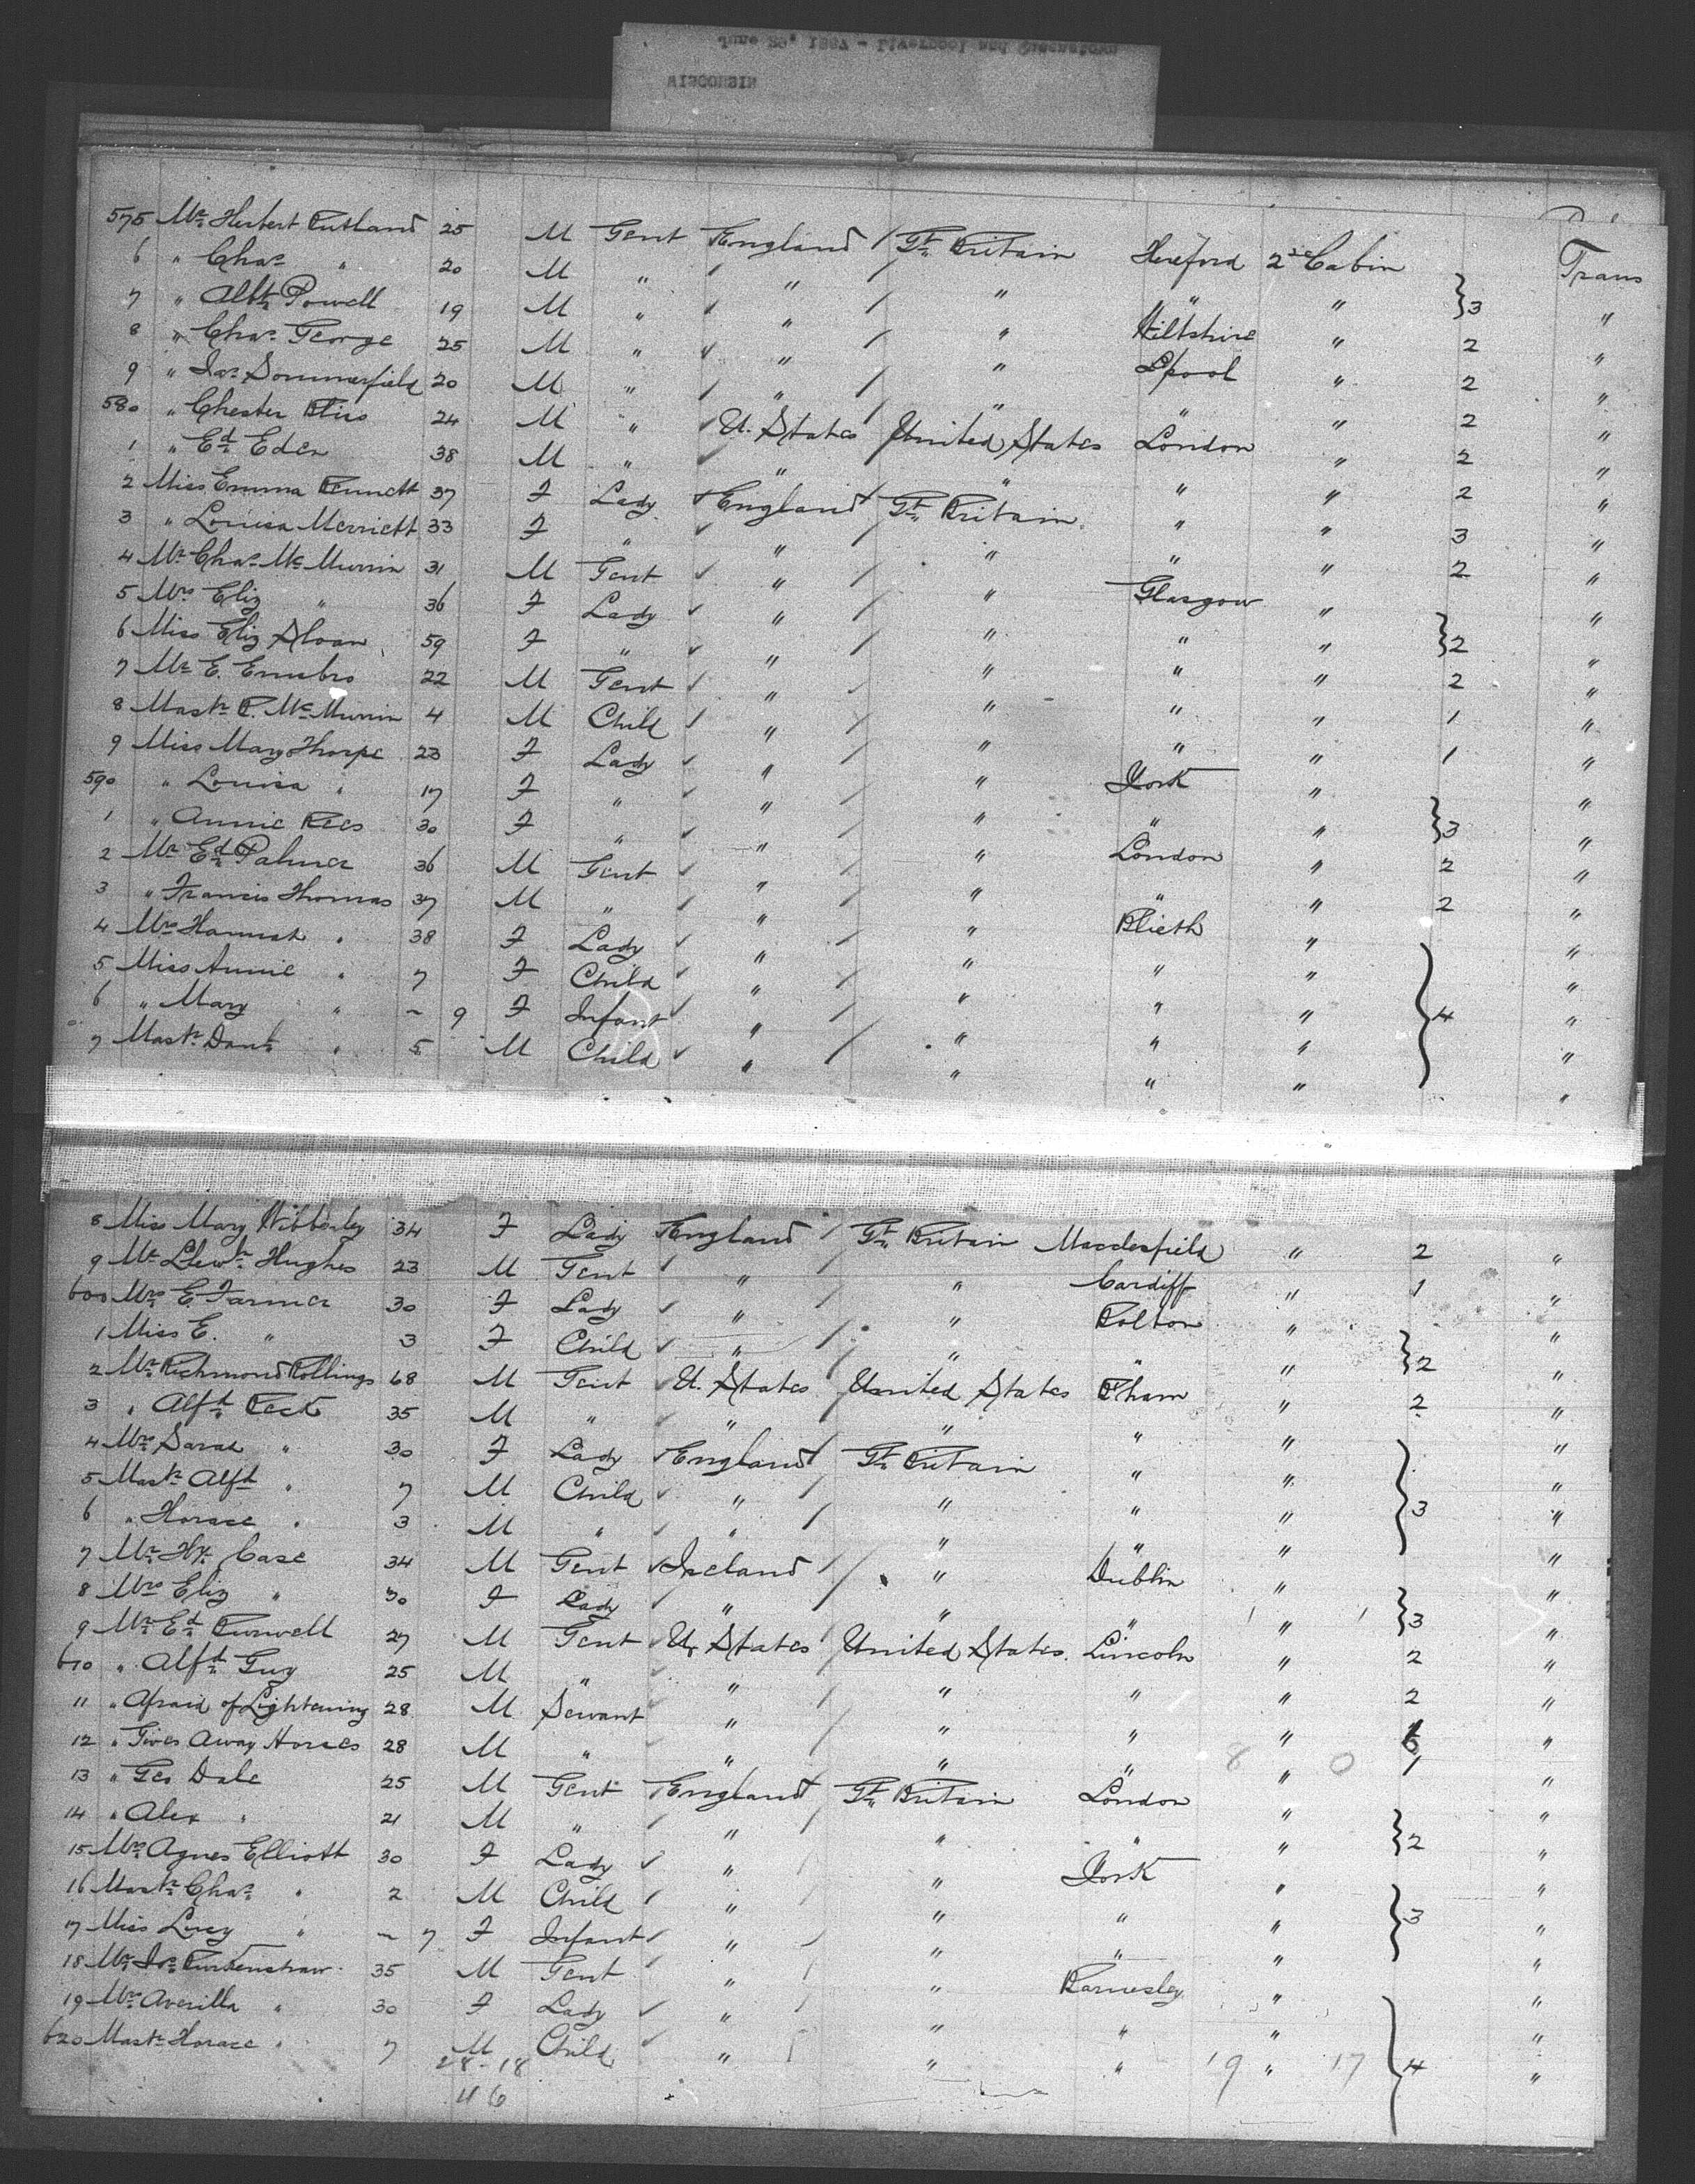 June 29" 1887 - Liverpool and Queenstown
WISCONSIN
575 Mr Herbert Rutland 25 M Gent England / Gt Britain Hereford 2d Cabin Trans
6 " Chas " 20 M " " / " " " } 3 "
7 " Albt Powell 19 M " " / " Wiltshire " 2 "
8 " Chas George 25 M " " / " L'pool " 2 "
9 " Jas Sommerfield 20 M " " / " " " 2 "
580 " Chester 24 M " U. States United States London " 2 "
1 " Ed Eden 38 M " " / " " " 2 "
2 Miss Emma Bennett 37 F Lady England Gt Britain " " 3 "
3 " Louisa Merriett 33 F " " / " " " 2 "
4 Mr Chas McMurrin 31 M Gent " / " Glasgow " "
5 Mrs Eliz " 36 F Lady " / " " " } 2 "
6 Miss Eliz Sloan 59 F " " / " " " 2 "
7 Mr E. 22 M Gent " / " " " 1 "
8 Mastr R. McMurrin 4 M Child " / " " " 1 "
9 Miss Mary Thorpe 23 F Lady " / " York " "
590 " Louisa " 17 F " " / " " " } 3 "
1 " Annie Rees 30 F " " / " London " 2 "
2 Mr Ed Palmer 36 M Gent " / " " " 2 "
3 " Francis Thomas 37 M " " / " " "
4 Mrs Hannah " 38 F Lady " / " " " "
5 Miss Annie " 7 F Child " / " " " "
6 " Mary " ~ 9 F Infant " / " " " } 4 "
7 Mastr Danl " 5 M Child " / " " " "
8 Miss Mary Wibberley 34 F Lady England / Gt Britain Macclesfield " 2 "
9 Mr Llewn Hughes 23 M Gent " / " Cardiff " 1 "
600 Mrs E. Farmer 30 F Lady " / " Bolton " "
1 Miss E. " 3 F Child " / " " " } 2 "
2 Mr Richmond Rollings 68 M Gent U. States United States B'ham " 2 "
3 " Alfd Peck 35 M " " " " " "
4 Mrs Sarah " 30 F Lady England / Gt Britain " " "
5 Mastr Alfd " 7 M Child " / " " " } 3 "
6 " Horace " 3 M " " / " " " "
7 Mr Hy. Case 34 M Gent Ireland / " Dublin " "
8 Mrs Eliz " 30 F Lady " / " " " } 3 "
9 Mr Ed Burwell 27 M Gent U. States United States Lincoln " 2 "
610 " Alfd Guy 25 M " " / " " " 2 "
11 " Afraid of Lightening 28 M Servant " / " " " "
12 " Gives Away Horses 28 M " " / " " " 1 "
13 " Geo Dale 25 M Gent England Gt Britain London " "
14 " Alex " 21 M " " " " " } 2 "
15 Mrs Agnes Elliott 30 F Lady " / " York " "
16 Mastr Chas " 2 M Child " / " " " } 3 "
17 Miss Lucy " ~ 7 F Infant " / " " " "
18 Mr Jos Burkenshaw 35 M Gent " / " Barnesley " "
19 Mrs Averilla " 30 F Lady " / " " " "
620 Mastr Horace " 7 M Child " " " " } 4 "
28-18
46
8 0
19 17